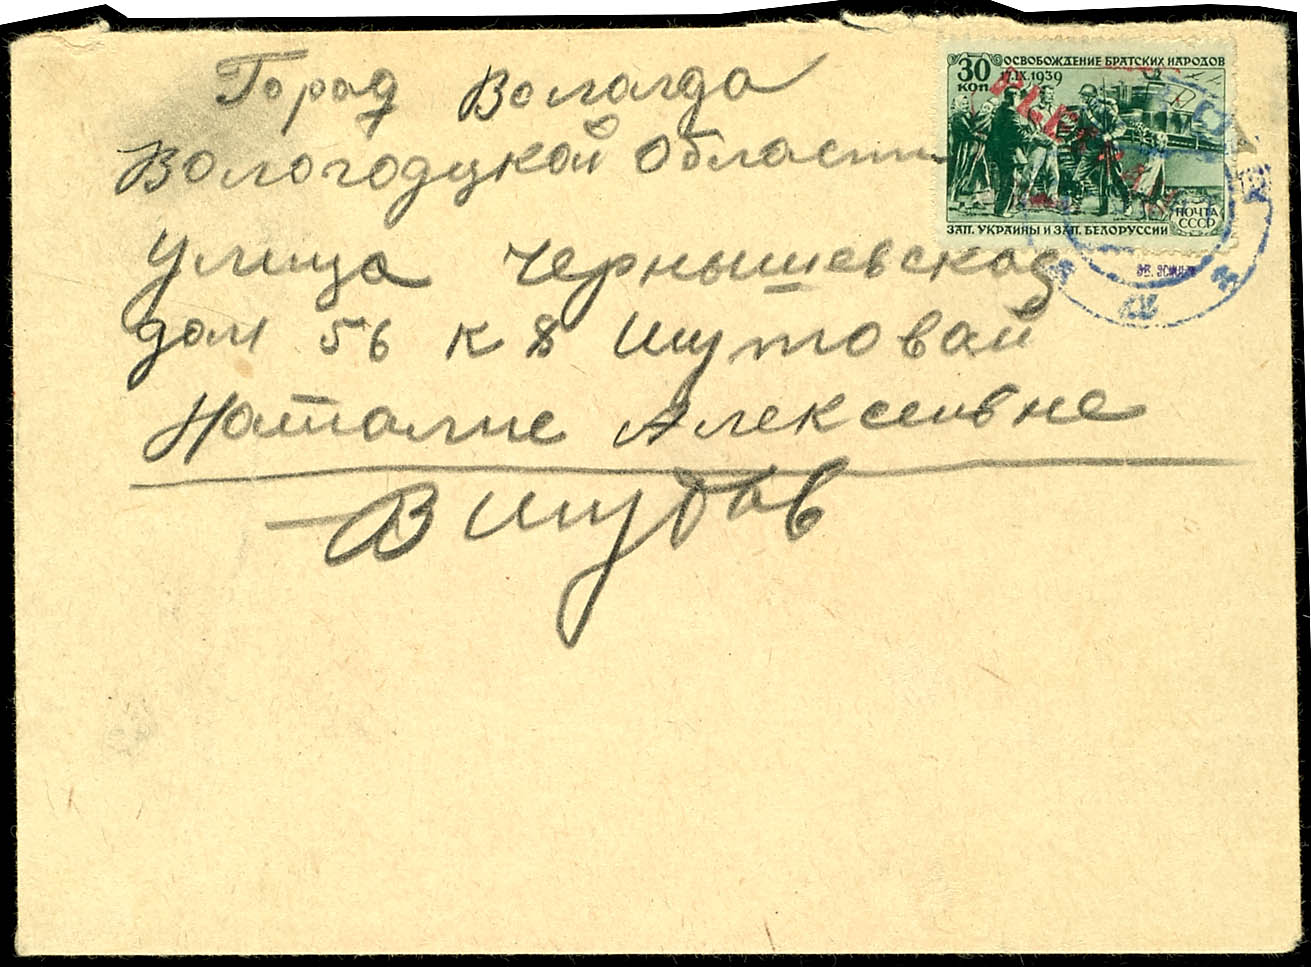 30 КОП
ОСВОБОЖДЕНИЕ БРАТСКИХ НАРОДОВ
17.IX.1939
ПОЧТА
СССР
ЗАП. УКРАИНЫ И ЗАП. БЕЛОРУССИИ
Город Вологда
Вологодцкой Области
улица Чернышевская
дом 56 к 8 Шутовай
Наталие Алексеивне
В Шутов